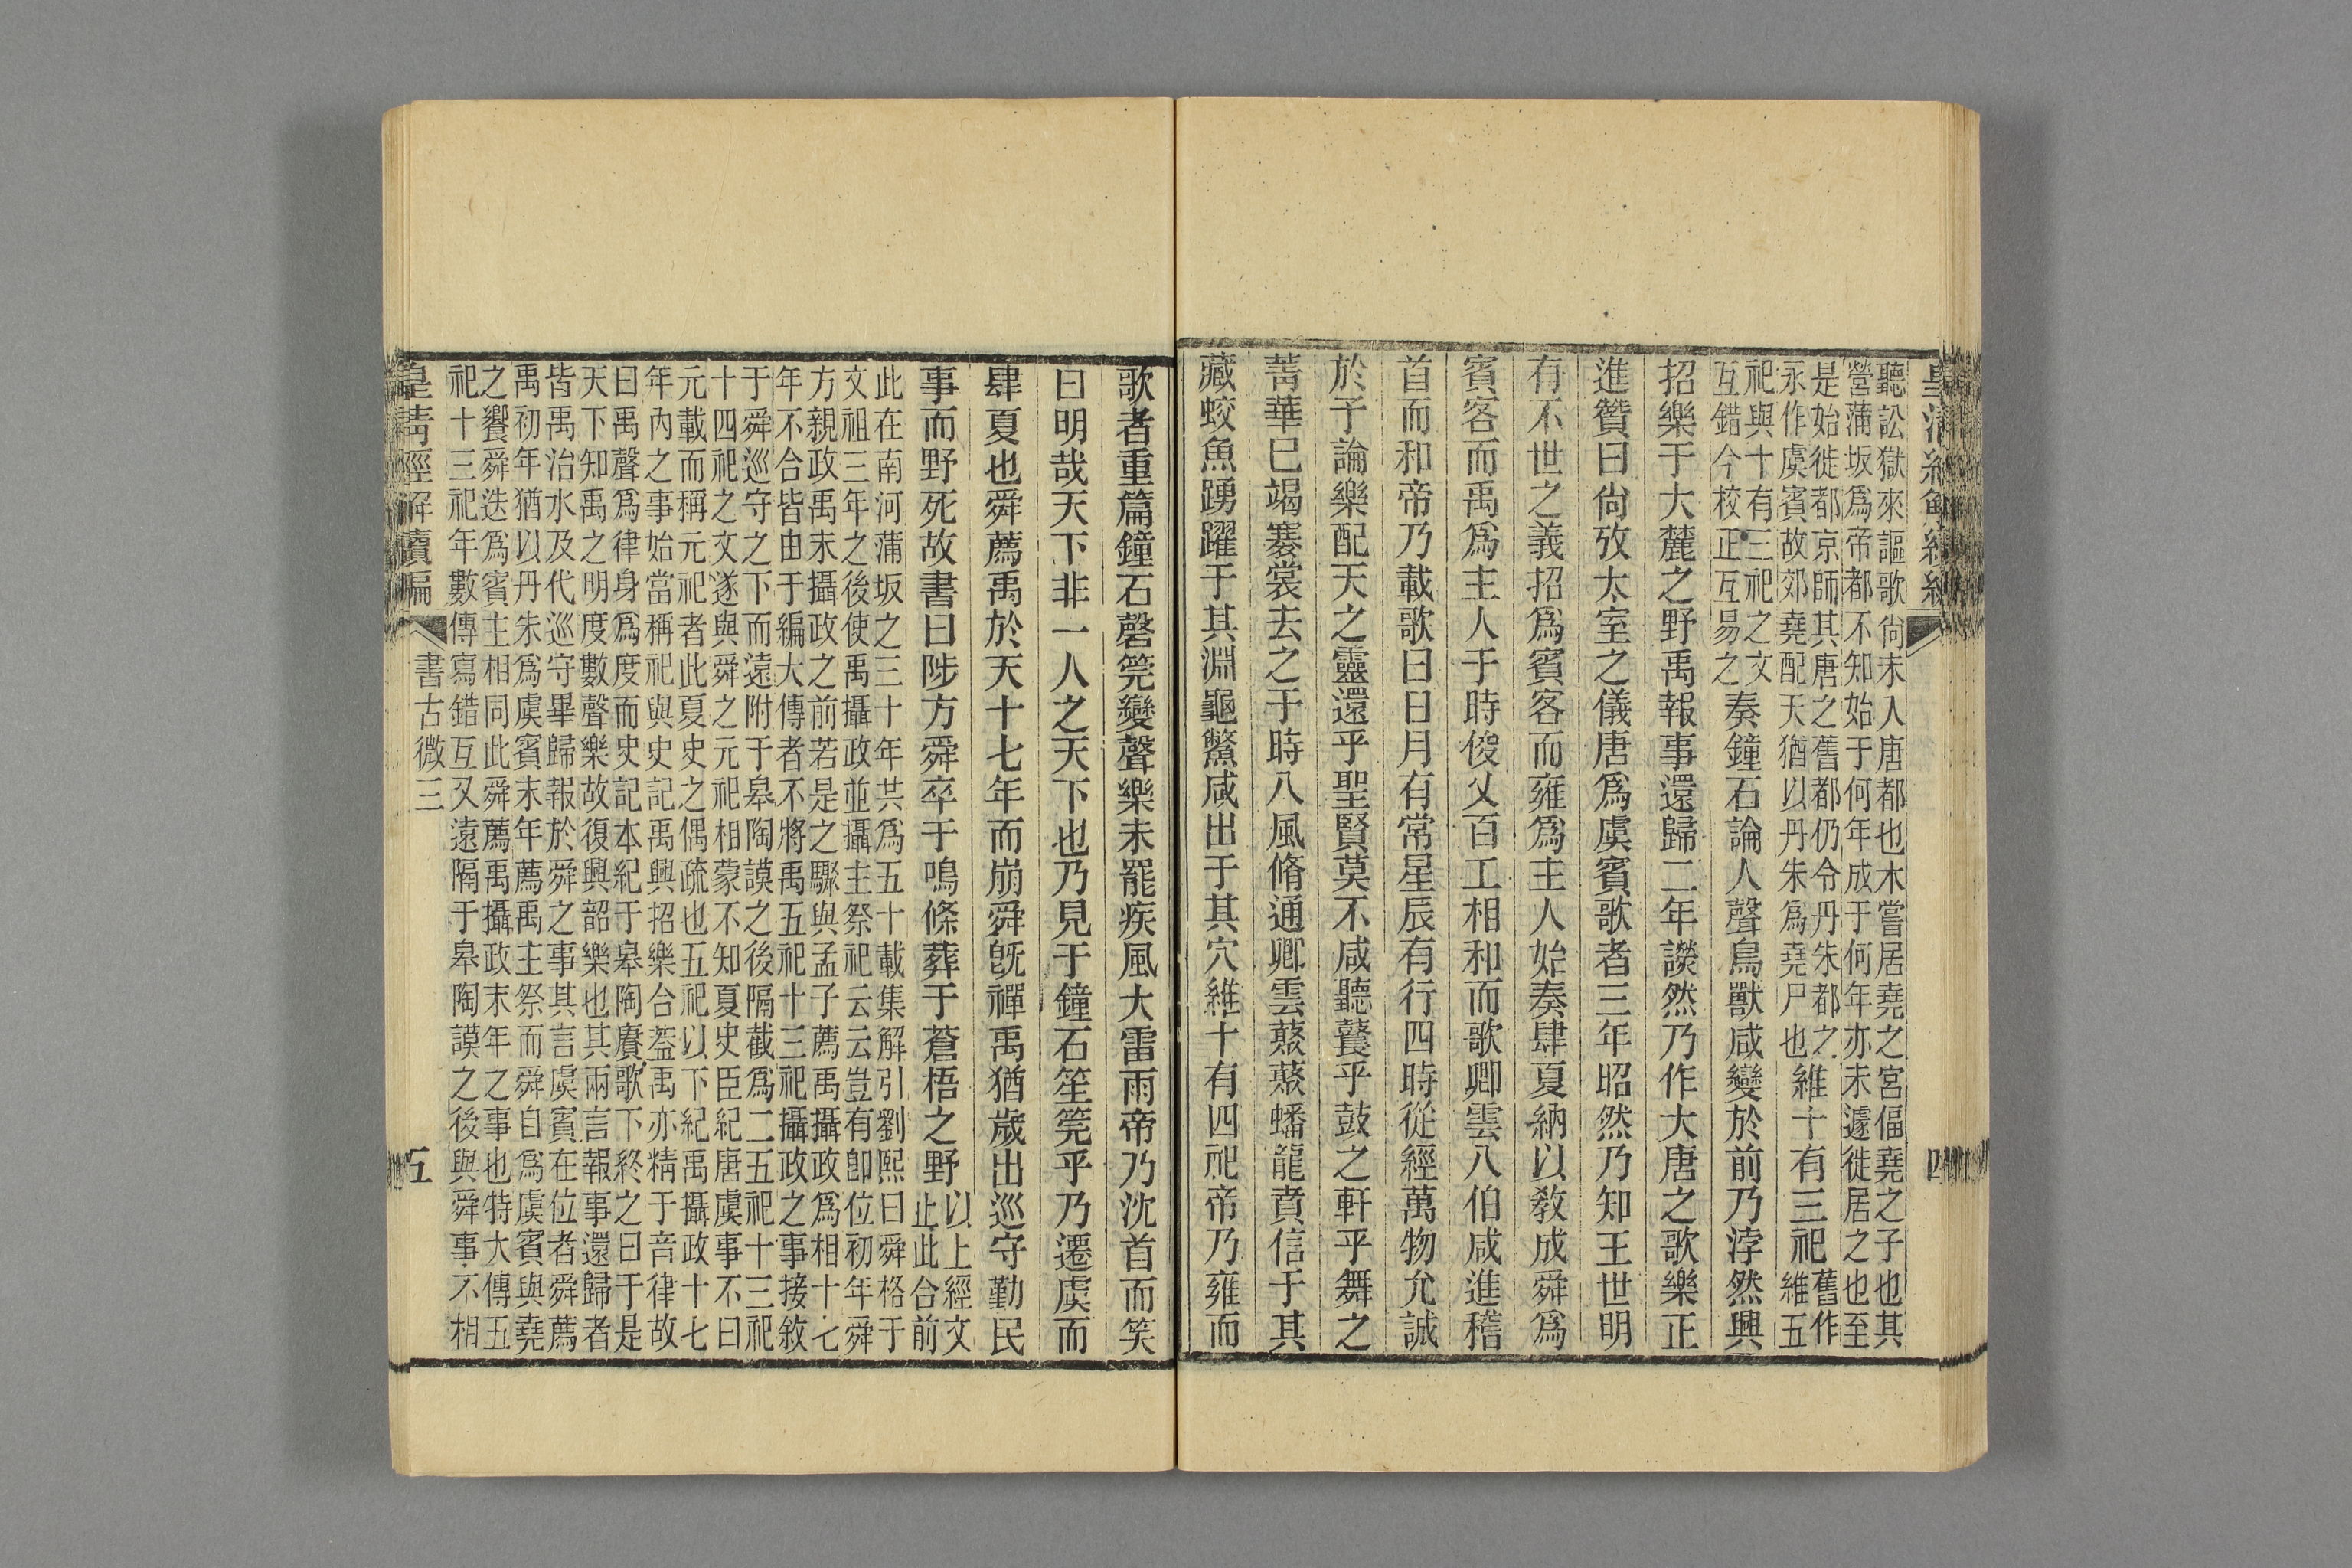 聽訟獄來謳歌尙未入唐都也木嘗居堯之宮偪堯之子也其
營蒲坂爲帝都不知始于何年成于何年亦未遽徙居之也至
是始徙都京師其唐之舊都仍令丹朱都之
永作虞賓故郊堯配天猶以丹朱爲堯尸也維十有三祀舊作
維五
祀與十有三祀之文
互錯今校正互易之奏鐘石論人聲鳥獸咸變於前乃浡然興
招樂于大麓之野禹報事還歸二年談然乃作大唐之歌樂正
進贊曰尙攷太室之儀唐爲虞賓歌者三年昭然乃知王世明
有不世之義招爲賓客而雍爲主人始奏肆夏納以敎成舜爲
賓客而禹爲主人于時俊乂百工相和而歌卿雲八伯咸進稽
首而和帝乃載歌曰日月有常星辰有行四時從經萬物允誠
於予論樂配天之靈還乎聖賢莫不咸聽鼚乎鼓之軒乎舞之
菁華巳竭褰裳去之于時八風脩通卿雲蔟蔟蟠龍賁信于其
藏蛟魚踴躍于其淵龜鱉咸出于其穴維十有四祀帝乃雍而
皇淸經解續編
四
歌者重篇鐘石磬筦變聲樂未罷疾風大雷雨帝乃沈首而笑
曰明哉天下非一人之天下也乃見于鐘石笙筦乎乃遷虞而
肆夏也舜薦禹於天十七年而崩舜旣禪禹猶歲出巡守勤民
事而野死故書曰陟方舜卒于鳴條葬于蒼梧之野以上經文
止此合前
此在南河蒲坂之三十年共爲五十載集解引劉熙曰舜格于
文祖三年之後使禹攝政並攝主祭祀云云豈有卽位初年舜
方親政禹末攝政之前若是之驟與孟子薦禹攝政爲相十七
年不合皆由于編大傳者不將禹五祀十三祀攝政之事接敘
于舜巡守之下而遠附于皋陶謨之後隔截爲二五祀十三祀
十四祀之文遂與舜之元祀相蒙不知夏史臣紀唐虞事不曰
元載而稱元祀者此夏史之偶疏也五祀以下紀禹攝政十七
年內之事始當稱祀與史記禹興招樂合葢禹亦精于音律故
曰禹聲爲律身爲度而史記本紀于皋陶賡歌下終之曰于是
天下知禹之明度數聲樂故復興韶樂也其兩言報事還歸者
皆禹治水及代巡守畢歸報於舜之事其言虞賓在位者舜薦
禹初年猶以丹朱爲虞賓末年薦禹主祭而舜自爲虞賓與堯
之饗舜迭爲賓主相同此舜薦禹攝政末年之事也特大傳五
祀十三祀年數傳寫錯互又遠隔于皋陶謨之後與舜事不相
皇淸經解續編
書古微三
五